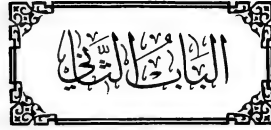 البَابُ الثَّانِي